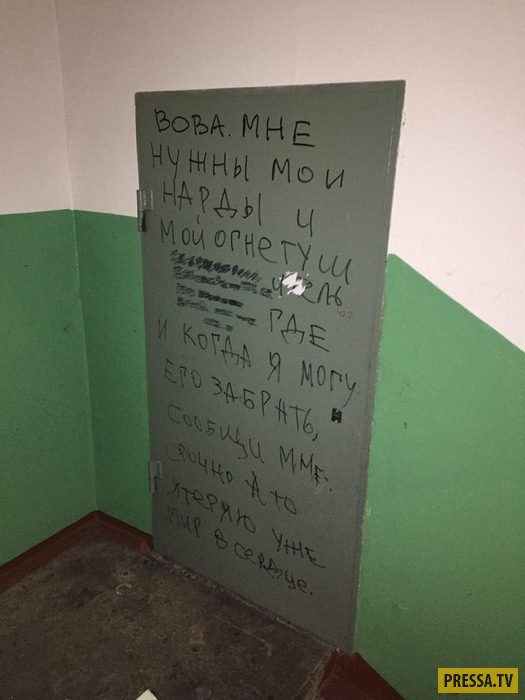 ВОВА. МНЕ
НУЖНЫ МОИ
НАРДЫ И
МОЙ ОГНЕТУШ
ИТЕЛЬ
ГДЕ
И КОГДА Я МОГУ
ЕГО ЗАБРАТЬ,
СООБЩИ МНЕ.
СРОЧНО А ТО
Я ТЕРЯЮ УЖЕ
МИР В СЕРДЦЕ.
PRESSA.TV